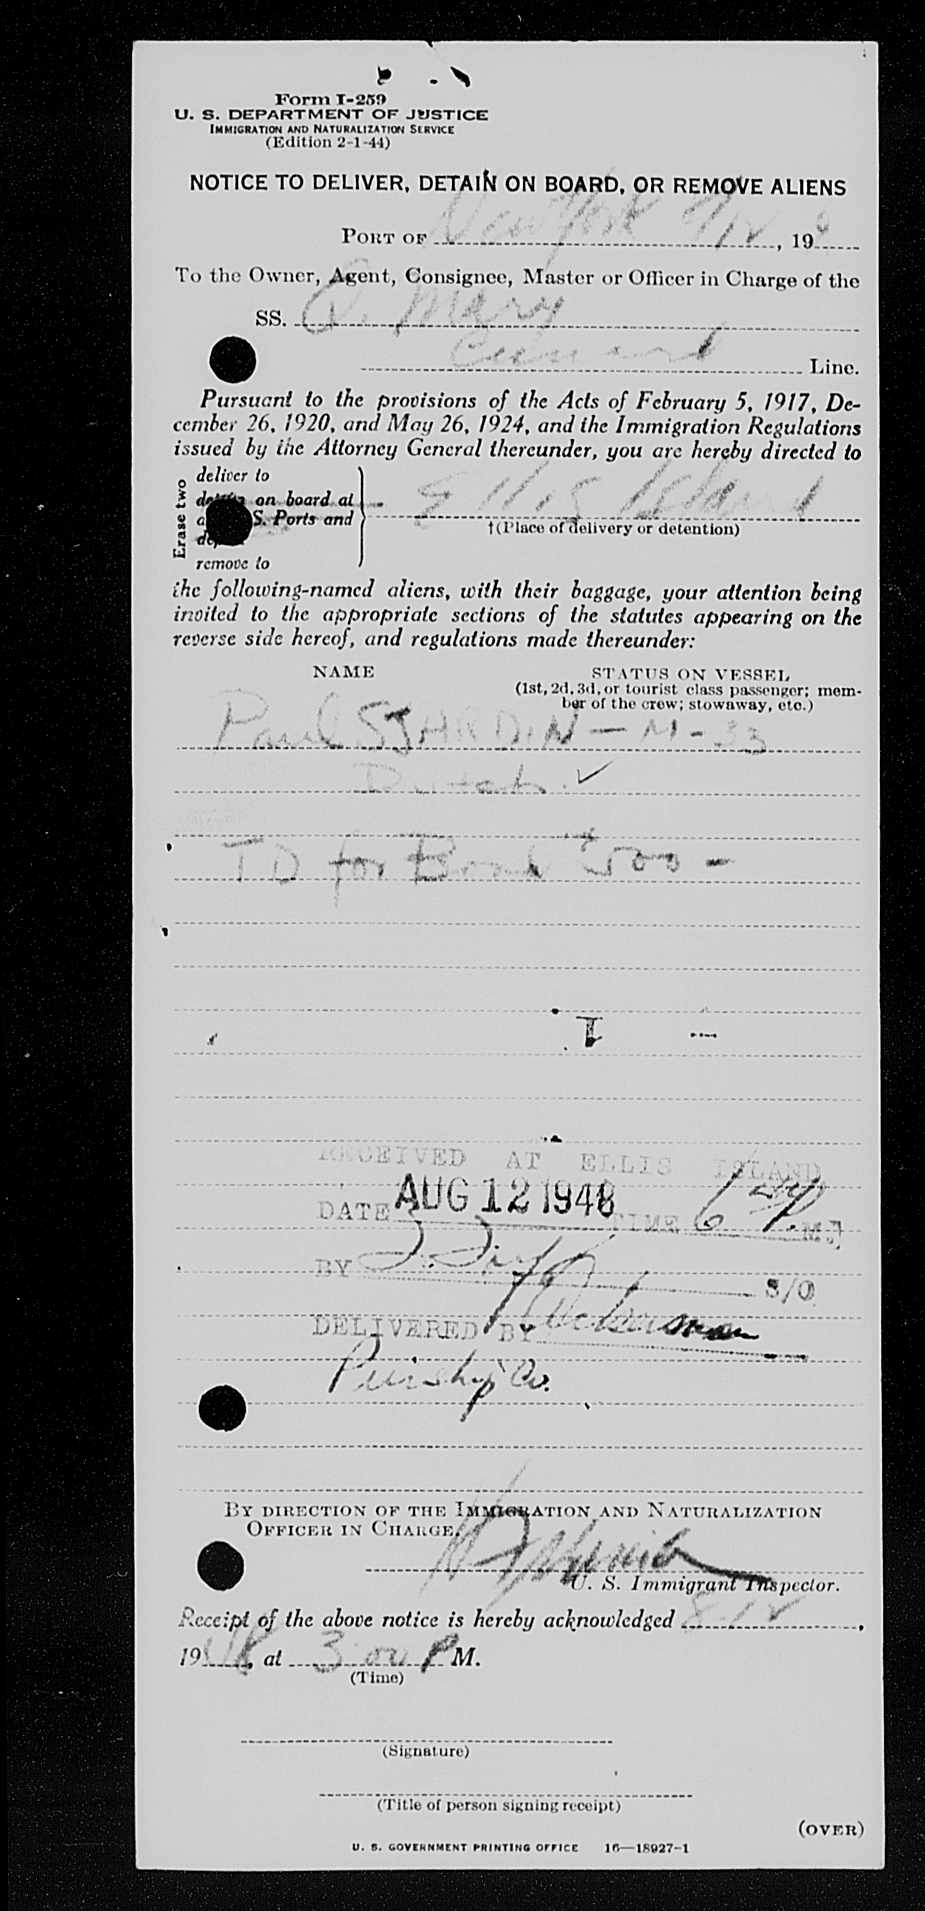 Form I-259
U. S. DEPARTMENT OF JUSTICE
IMMIGRATION AND NATURALIZATION SERVICE
(Edition 2-1-44)
NOTICE TO DELIVER, DETAIN ON BOARD, OR REMOVE ALIENS
PORT OF New York 8/12, 19
To the Owner, Agent, Consignee, Master or Officer in Charge of the
SS. Q. Mary
Cunard Line.
Pursuant to the provisions of the Acts of February 5, 1917, De-
cember 26, 1920, and May 26, 1924, and the Immigration Regulations
issued by the Attorney General thereunder, you are hereby directed to
Erase two
deliver to
detain on board at
S. Ports and
Ellis Island
†(Place of delivery or detention)
remove to
the following-named aliens, with their baggage, your attention being
invited to the appropriate sections of the statutes appearing on the
reverse side hereof, and regulations made thereunder:
NAME STATUS ON VESSEL
(1st, 2d, 3d, or tourist class passenger; mem-
ber of the crew; stowaway, etc.)
Paul SJARDIN - M - 33
Dutch ✓
TD for Bond 500 -
RECEIVED AT ELLIS ISLAND
DATE AUG 12 1948 TIME 6 P.M.
BY S/O
DELIVERED BY
Co.
BY DIRECTION OF THE IMMIGRATION AND NATURALIZATION
OFFICER IN CHARGE.
U. S. Immigrant Inspector.
Receipt of the above notice is hereby acknowledged 8-12,
1948, at 3 00 P M.
(Time)
(Signature)
(Title of person signing receipt)
(OVER)
U. S. GOVERNMENT PRINTING OFFICE 16—18927-1